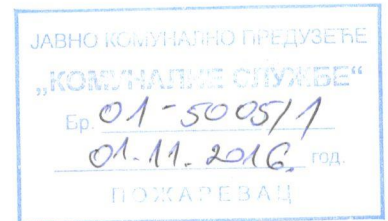 ЈАВНО КОМУНАЛНО ПРЕДУЗЕЋЕ
„КОМУНАЛНЕ СЛУЖБЕ“
Бр. 01-5005/1
01.11.2016. год.
ПОЖАРЕВАЦ